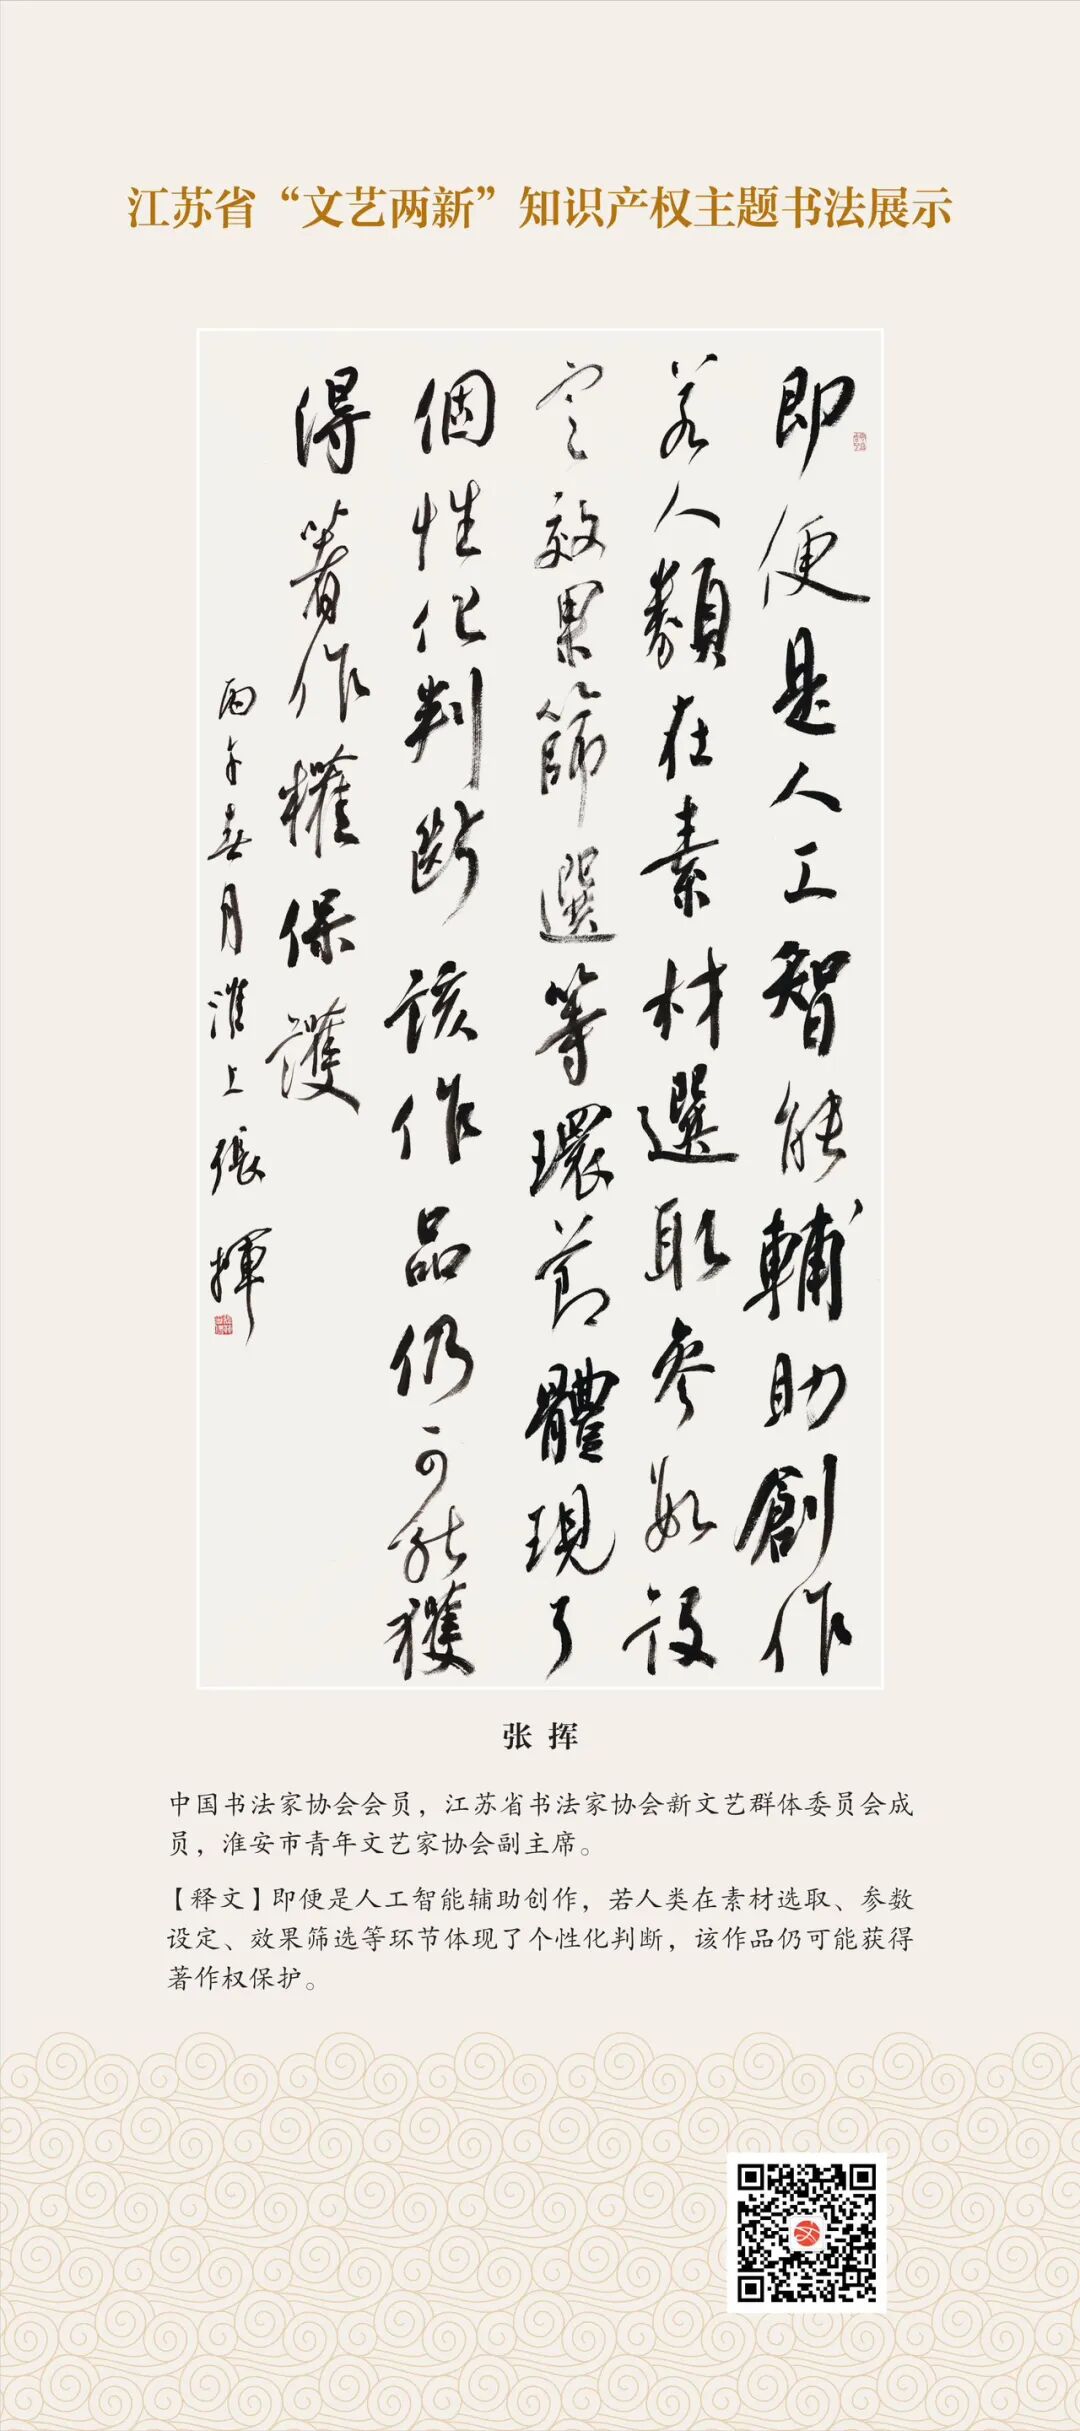 江苏省“文艺两新”知识产权主题书法展示
即便是人工智能辅助創作
若人類在素材選取参数設
定效果篩選等環節體現了
個性化判斷該作品仍可能獲
得著作權保護
丙午春月淮上張揮
张 挥
中国书法家协会会员，江苏省书法家协会新文艺群体委员会成
员，淮安市青年文艺家协会副主席。
【释文】即便是人工智能辅助创作，若人类在素材选取、参数
设定、效果筛选等环节体现了个性化判断，该作品仍可能获得
著作权保护。